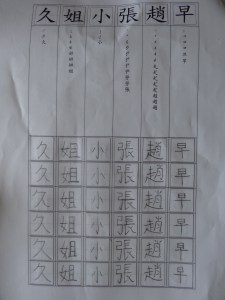 久姐小張趙早
久姐小張趙早
久姐小張趙早
久姐小張趙早
久姐小張趙早
久姐小張趙早
久姐小張趙早